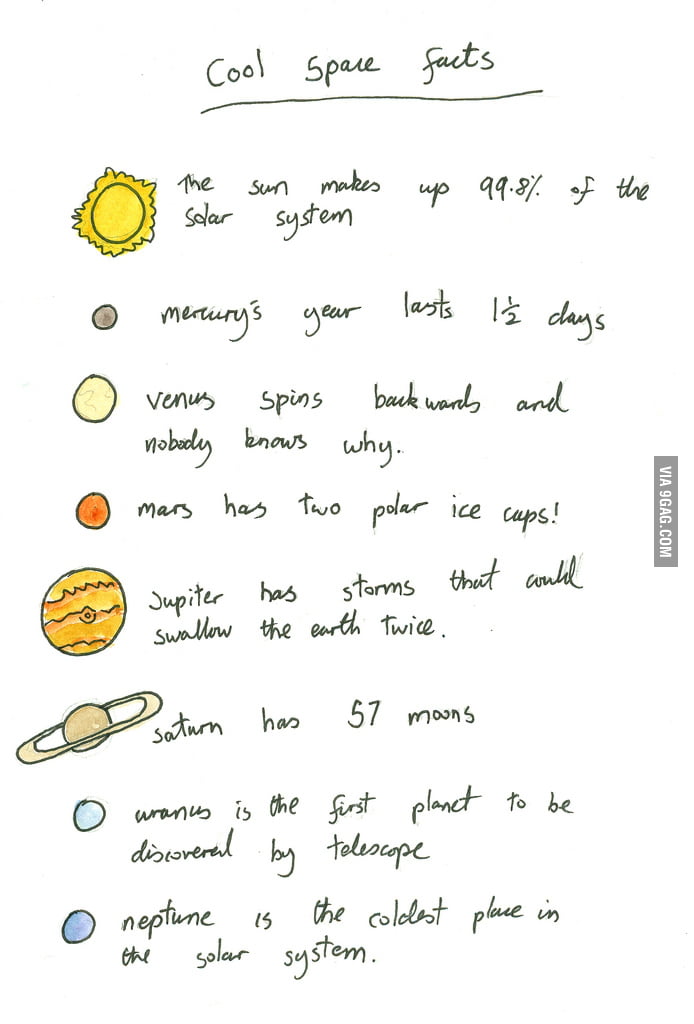 Cool Space facts
The sun makes up 99.8% of the
solar system
mercury's year lasts 1½ days
venus spins backwards and
nobody knows why.
mars has two polar ice caps!
Jupiter has storms that could
swallow the earth twice.
saturn has 57 moons
uranus is the first planet to be
discovered by telescope
neptune is the coldest place in
the solar system.
VIA 9GAG.COM